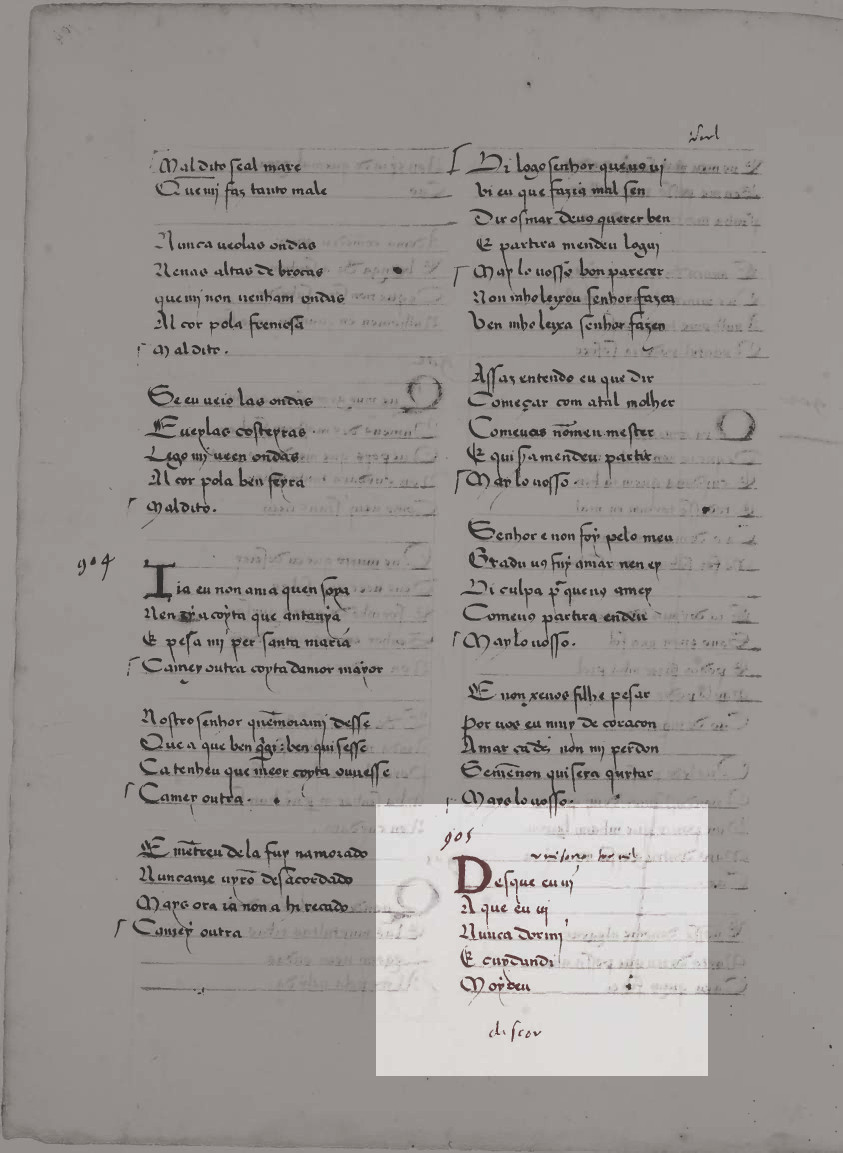 Maldito seal mare
Que mi faz tanto male
Nunca ueolas ondas
Nenas altas de brocas
que mi non uenham ondas
Al cor pola fremosa
Maldito.
Se eu ueio las ondas
E ueylas costeyras
Lego mi ueen ondas
Al cor pola ben feyta
Maldito.
904
Ia eu non auia quen soya
Nen a coyta que antauya
E pesa mi per santa maria
Camey outra coyta damor mayor
Nostro senhor quē morami desse
Que a que ben qigi: ben quisesse
Ca tenheu que meor coyta ouuesse
Camey outra.
E metreu de la fuy namorado
Nuncame uyrō desacordado
Mays ora ia non a hi recado
Camey outra
Di logo senhor que uo9 ui
Vi eu que fazia mal sen
Dir osmar deuo9 querer ben
E partira mendeu loguj
May lo uossō bon parecer
Non mho leyxou senhor fazer
Ven mho leixa senhor fazen
Assaz entendo eu que dir
Começar com atal molher
Comeuos nōmen mester
E quisamendeu partir
May lo uosso.
Senhor e non foy pelo meu
Gradu uo9 fuy amar nen ey
Di culpa p̄ que uo9 amey
Comeuo9 partira endeu
May lo uosso.
E non xeuos filhe pesar
Por uos eu muy de coraçon
Amar cades non mi perdon
Semēnon quisera qurtar
Mays lo uosso.
905
Desque eu ui
A que eu ui
Nunca dormi
E cuydandi
Moyreu
discor